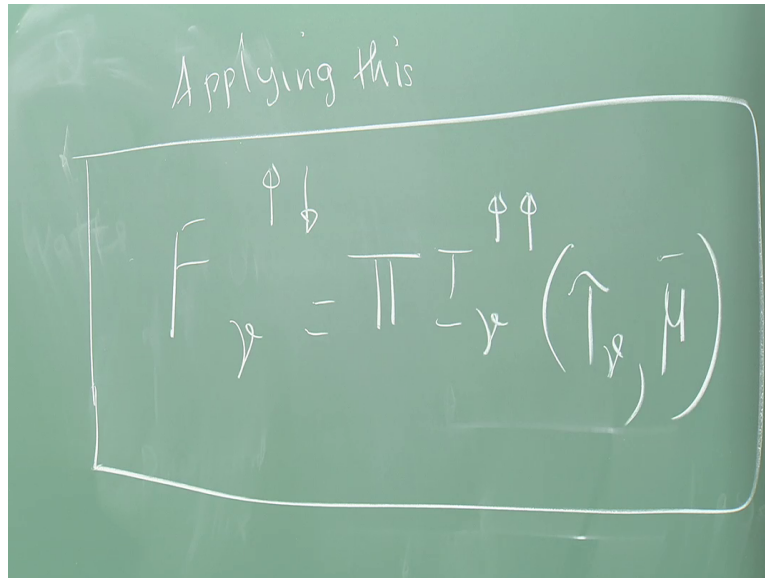 Applying this
F_ν^{↑↓} = π I_ν^{↑↑} (τ_ν, μ̄)